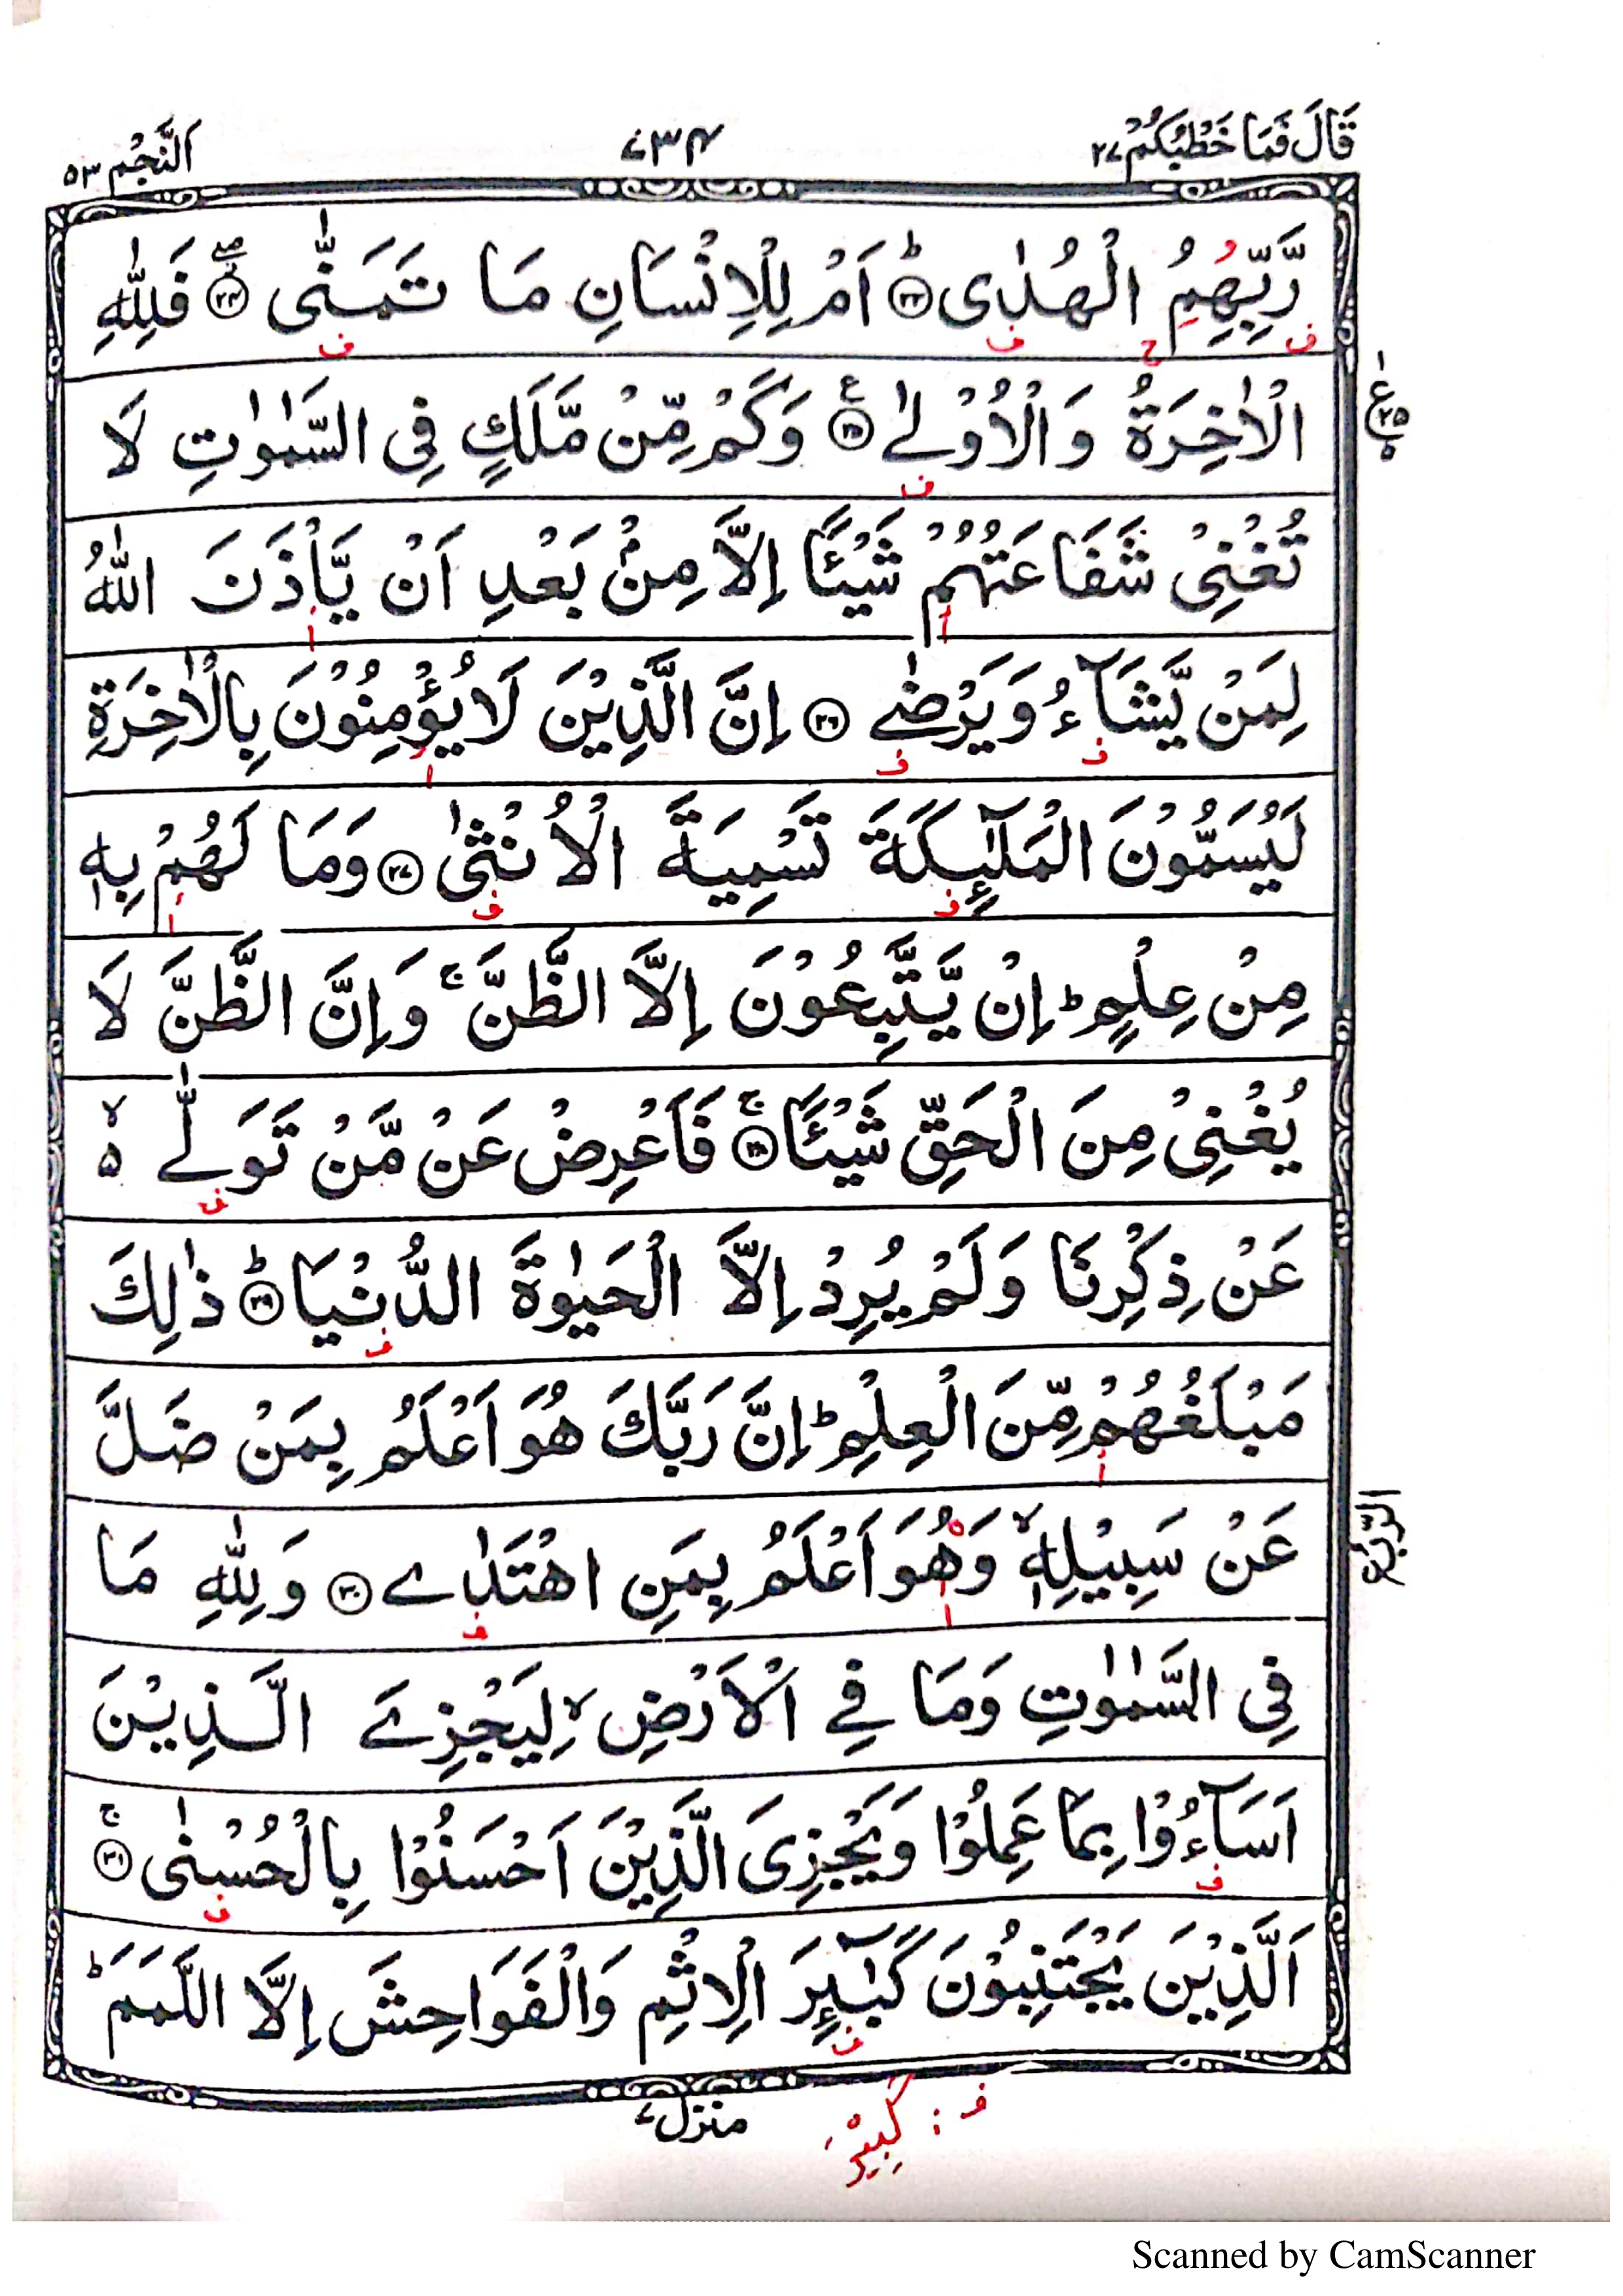 قَالَ فَمَا خَطْبُكُمْ ٢٧
٧٣٤
اَلنَّجْم ٥٣
رَّبِّهِمُ الْهُدٰى ؕ﴿٢٣﴾ اَمْ لِلْاِنْسَانِ مَا تَمَنّٰى ۖ﴿٢٤﴾ فَلِلّٰهِ
الْاٰخِرَةُ وَالْاُوْلٰى ﴿٢٥﴾ ع وَكَمْ مِّنْ مَّلَكٍ فِى السَّمٰوٰتِ لَا
تُغْنِىْ شَفَاعَتُهُمْ شَيْـًٔا اِلَّا مِنْۢ بَعْدِ اَنْ يَّاْذَنَ اللّٰهُ
لِمَنْ يَّشَآءُ وَيَرْضٰى ﴿٢٦﴾ اِنَّ الَّذِيْنَ لَا يُؤْمِنُوْنَ بِالْاٰخِرَةِ
لَيُسَمُّوْنَ الْمَلٰٓئِكَةَ تَسْمِيَةَ الْاُنْثٰى ﴿٢٧﴾ وَمَا لَهُمْ بِهٖ
مِنْ عِلْمٍ ؕ اِنْ يَّتَّبِعُوْنَ اِلَّا الظَّنَّ ۚ وَاِنَّ الظَّنَّ لَا
يُغْنِىْ مِنَ الْحَقِّ شَيْـًٔا ۚ﴿٢٨﴾ فَاَعْرِضْ عَنْ مَّنْ تَوَلّٰى ۙ ٥
عَنْ ذِكْرِنَا وَلَمْ يُرِدْ اِلَّا الْحَيٰوةَ الدُّنْيَا ؕ﴿٢٩﴾ ذٰلِكَ
مَبْلَغُهُمْ مِّنَ الْعِلْمِ ؕ اِنَّ رَبَّكَ هُوَ اَعْلَمُ بِمَنْ ضَلَّ
عَنْ سَبِيْلِهٖ ۙ وَهُوَ اَعْلَمُ بِمَنِ اهْتَدٰى ﴿٣٠﴾ وَلِلّٰهِ مَا
فِى السَّمٰوٰتِ وَمَا فِى الْاَرْضِ ۙ لِيَجْزِىَ الَّذِيْنَ
اَسَآءُوْا بِمَا عَمِلُوْا وَيَجْزِىَ الَّذِيْنَ اَحْسَنُوْا بِالْحُسْنٰى ۚ﴿٣١﴾
اَلَّذِيْنَ يَجْتَنِبُوْنَ كَبٰٓئِرَ الْاِثْمِ وَالْفَوَاحِشَ اِلَّا اللَّمَمَ ؕ
منزل ٧
ف : كَبِيْرَ
Scanned by CamScanner